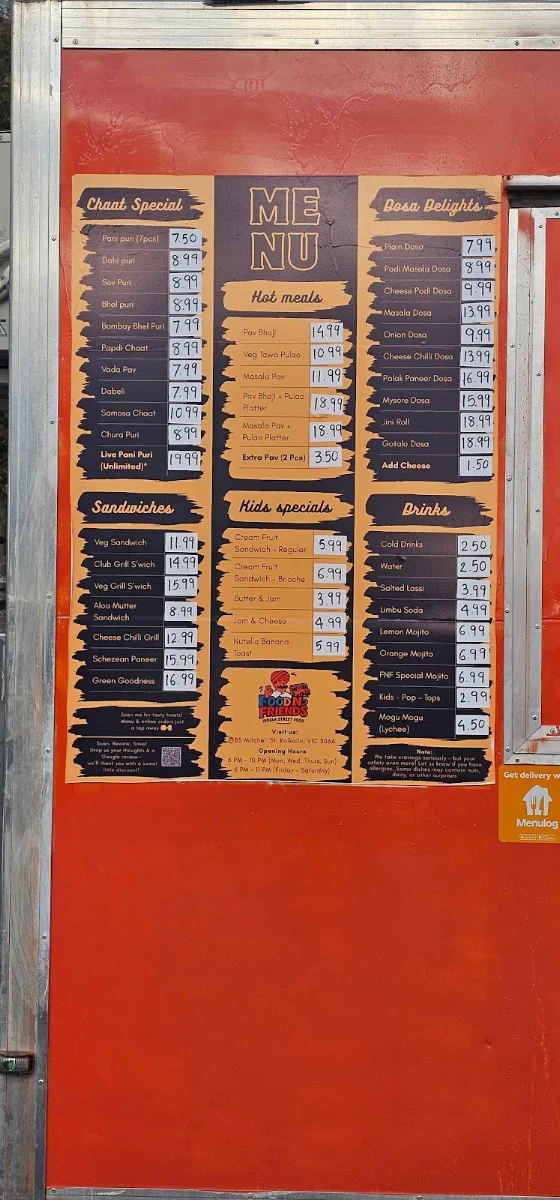 Chaat Special
Pani puri (7pcs) 7.50
Dahi puri 8.99
Sev Puri 8.99
Bhel puri 8.99
Bombay Bhel Puri 7.99
Papdi Chaat 8.99
Vada Pav 7.99
Dabeli 7.99
Samosa Chaat 10.99
Chura Puri 8.99
Live Pani Puri
(Unlimited)* 19.99
Sandwiches
Veg Sandwich 11.99
Club Grill S'wich 14.99
Veg Grill S'wich 15.99
Aloo Mutter
Sandwich 8.99
Cheese Chilli Grill 12.99
Schezean Paneer 15.99
Green Goodness 16.99
Scan me for tasty treats!
Menu & online orders just
a tap away
Scan, Review, Save!
Drop us your thoughts & a
Google review-
we'll thank you with a sweet
little discount!
ME
NU
Hot meals
Pav Bhaji 14.99
Veg Tawa Pulao 10.99
Masala Pav 11.99
Pav Bhaji + Pulao
Platter 18.99
Masala Pav +
Pulao Platter 18.99
Extra Pav (2 Pcs) 3.50
Kids specials
Cream Fruit
Sandwich - Regular 5.99
Cream Fruit
Sandwich - Brioche 6.99
Butter & Jam 3.99
Jam & Cheese 4.99
Nutella Banana
Toast 5.99
FOOD N
FRIENDS
INDIAN STREET FOOD
Visit us:
85 Mitchell St, Kalkallo, VIC 3064
Opening Hours
6 PM - 10 PM (Mon, Wed, Thurs, Sun)
6 PM - 11 PM (Friday - Saturday)
Dosa Delights
Plain Dosa 7.99
Podi Masala Dosa 8.99
Cheese Podi Dosa 9.99
Masala Dosa 13.99
Onion Dosa 9.99
Cheese Chilli Dosa 13.99
Palak Paneer Dosa 16.99
Mysore Dosa 15.99
Jini Roll 18.99
Gotalo Dosa 18.99
Add Cheese 1.50
Drinks
Cold Drinks 2.50
Water 2.50
Salted Lassi 3.99
Limbu Soda 4.99
Lemon Mojito 6.99
Orange Mojito 6.99
FNF Special Mojito 6.99
Kids - Pop - Tops 2.99
Mogu Mogu
(Lychee) 4.50
Note:
We take cravings seriously - but your
safety even more! Let us know if you have
allergies. Some dishes may contain nuts,
dairy, or other surprises
Get delivery w
Menulog